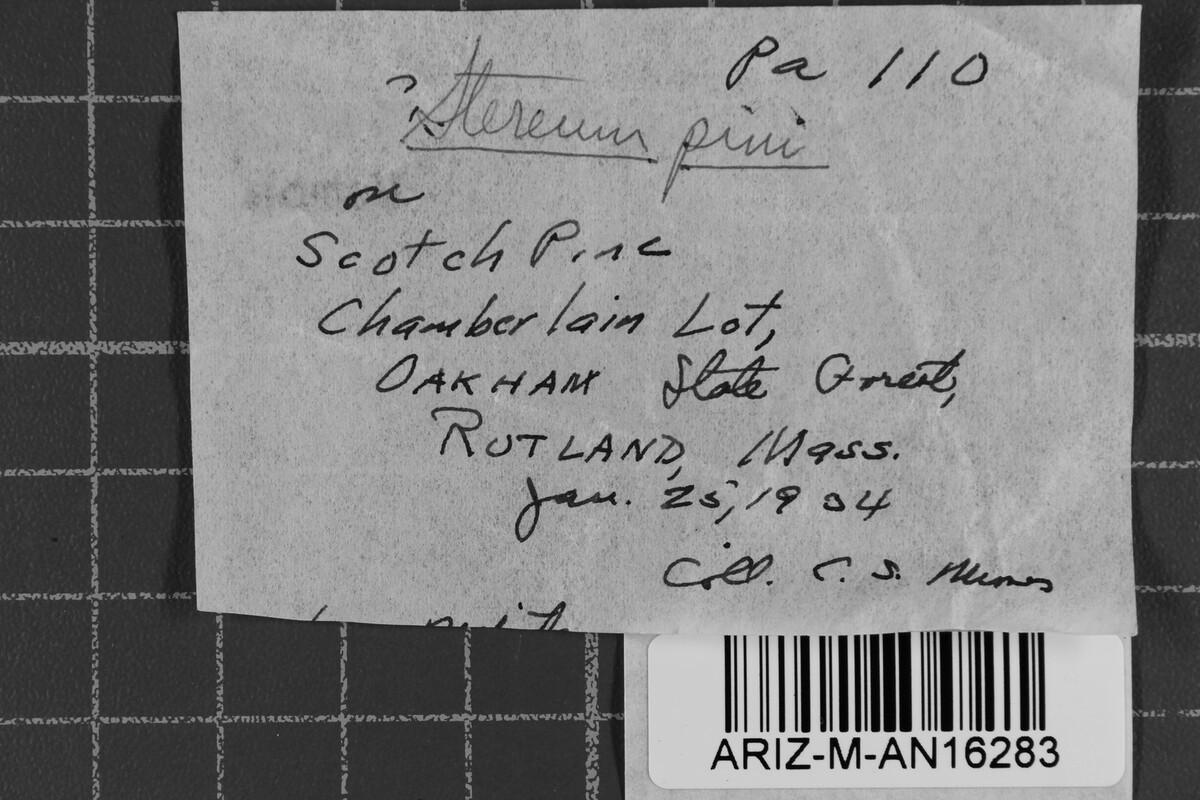 Pa 110
? Stereum pini
on
Scotch Pine
Chamberlain Lot,
OAKHAM State Forest,
RUTLAND, Mass.
Jan. 25, 1934
Coll. C. S.
ARIZ-M-AN16283